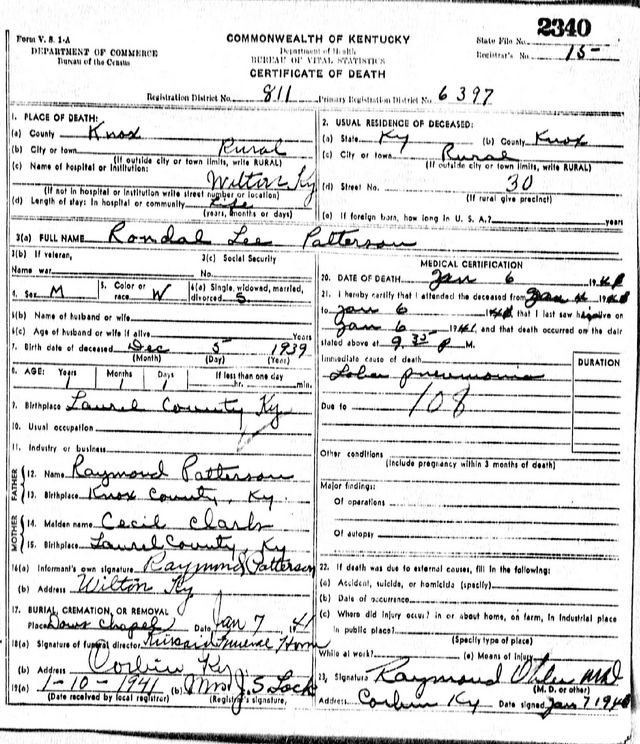 2340
Form V. S. 1-A
DEPARTMENT OF COMMERCE
Bureau of the Census
COMMONWEALTH OF KENTUCKY
Department of Health
BUREAU OF VITAL STATISTICS
CERTIFICATE OF DEATH
State File No.
Registrar's No. 15
Registration District No. 811 Primary Registration District No. 6397
1. PLACE OF DEATH:
(a) County Knox
(b) City or town Rural
(If outside city or town limits, write RURAL)
(c) Name of hospital or institution:
Wilton Ky
(If not in hospital or institution write street number or location)
(d) Length of stay: In hospital or community Life
(years, months or days)
2. USUAL RESIDENCE OF DECEASED:
(a) State Ky (b) County Knox
(c) City or town Rural
(If outside city or town limits, write RURAL)
(d) Street No. 30
(If rural give precinct)
(e) If foreign born, how long in U. S. A.? years
3(a) FULL NAME Rondal Lee Patterson
3(b) If veteran, 3(c) Social Security
Name war No.
4. Sex M 5. Color or race W 6(a) Single, widowed, married, divorced S
6(b) Name of husband or wife
6(c) Age of husband or wife if alive Years
7. Birth date of deceased Dec 5 1939
(Month) (Day) (Year)
8. AGE: Years Months Days If less than one day
1 1 1 hr. min.
9. Birthplace Laurel County Ky
10. Usual occupation
11. Industry or business
FATHER
12. Name Raymond Patterson
13. Birthplace Knox County, Ky
MOTHER
14. Maiden name Cecil Clark
15. Birthplace Laurel County, Ky
16(a) Informant's own signature Raymond Patterson
(b) Address Wilton Ky
17. BURIAL, CREMATION, OR REMOVAL
Place Chapel Date Jan 7 1941
18(a) Signature of funeral director Funeral Home
(b) Address Corbin Ky
19(a) 1-10-1941 (b) Mrs J. S. Lock
(Date received by local registrar) (Registrar's signature,
MEDICAL CERTIFICATION
20. DATE OF DEATH Jan 6 1941
21. I hereby certify that I attended the deceased from Jan 1941
to Jan 6 1941 that I last saw h alive on
Jan 6 1941, and that death occurred on the date
stated above at 9.35 P M.
Immediate cause of death DURATION
Lobar pneumonia
Due to 108
Other conditions
(Include pregnancy within 3 months of death)
Major findings:
Of operations
Of autopsy
22. If death was due to external causes, fill in the following:
(a) Accident, suicide, or homicide (specify)
(b) Date of occurrence
(c) Where did injury occur? in or about home, on farm, in industrial place
in public place?
(Specify type of place)
While at work? (e) Means of injury
23. Signature Raymond MD
(M. D. or other)
Address Corbin Ky Date signed Jan 7 194